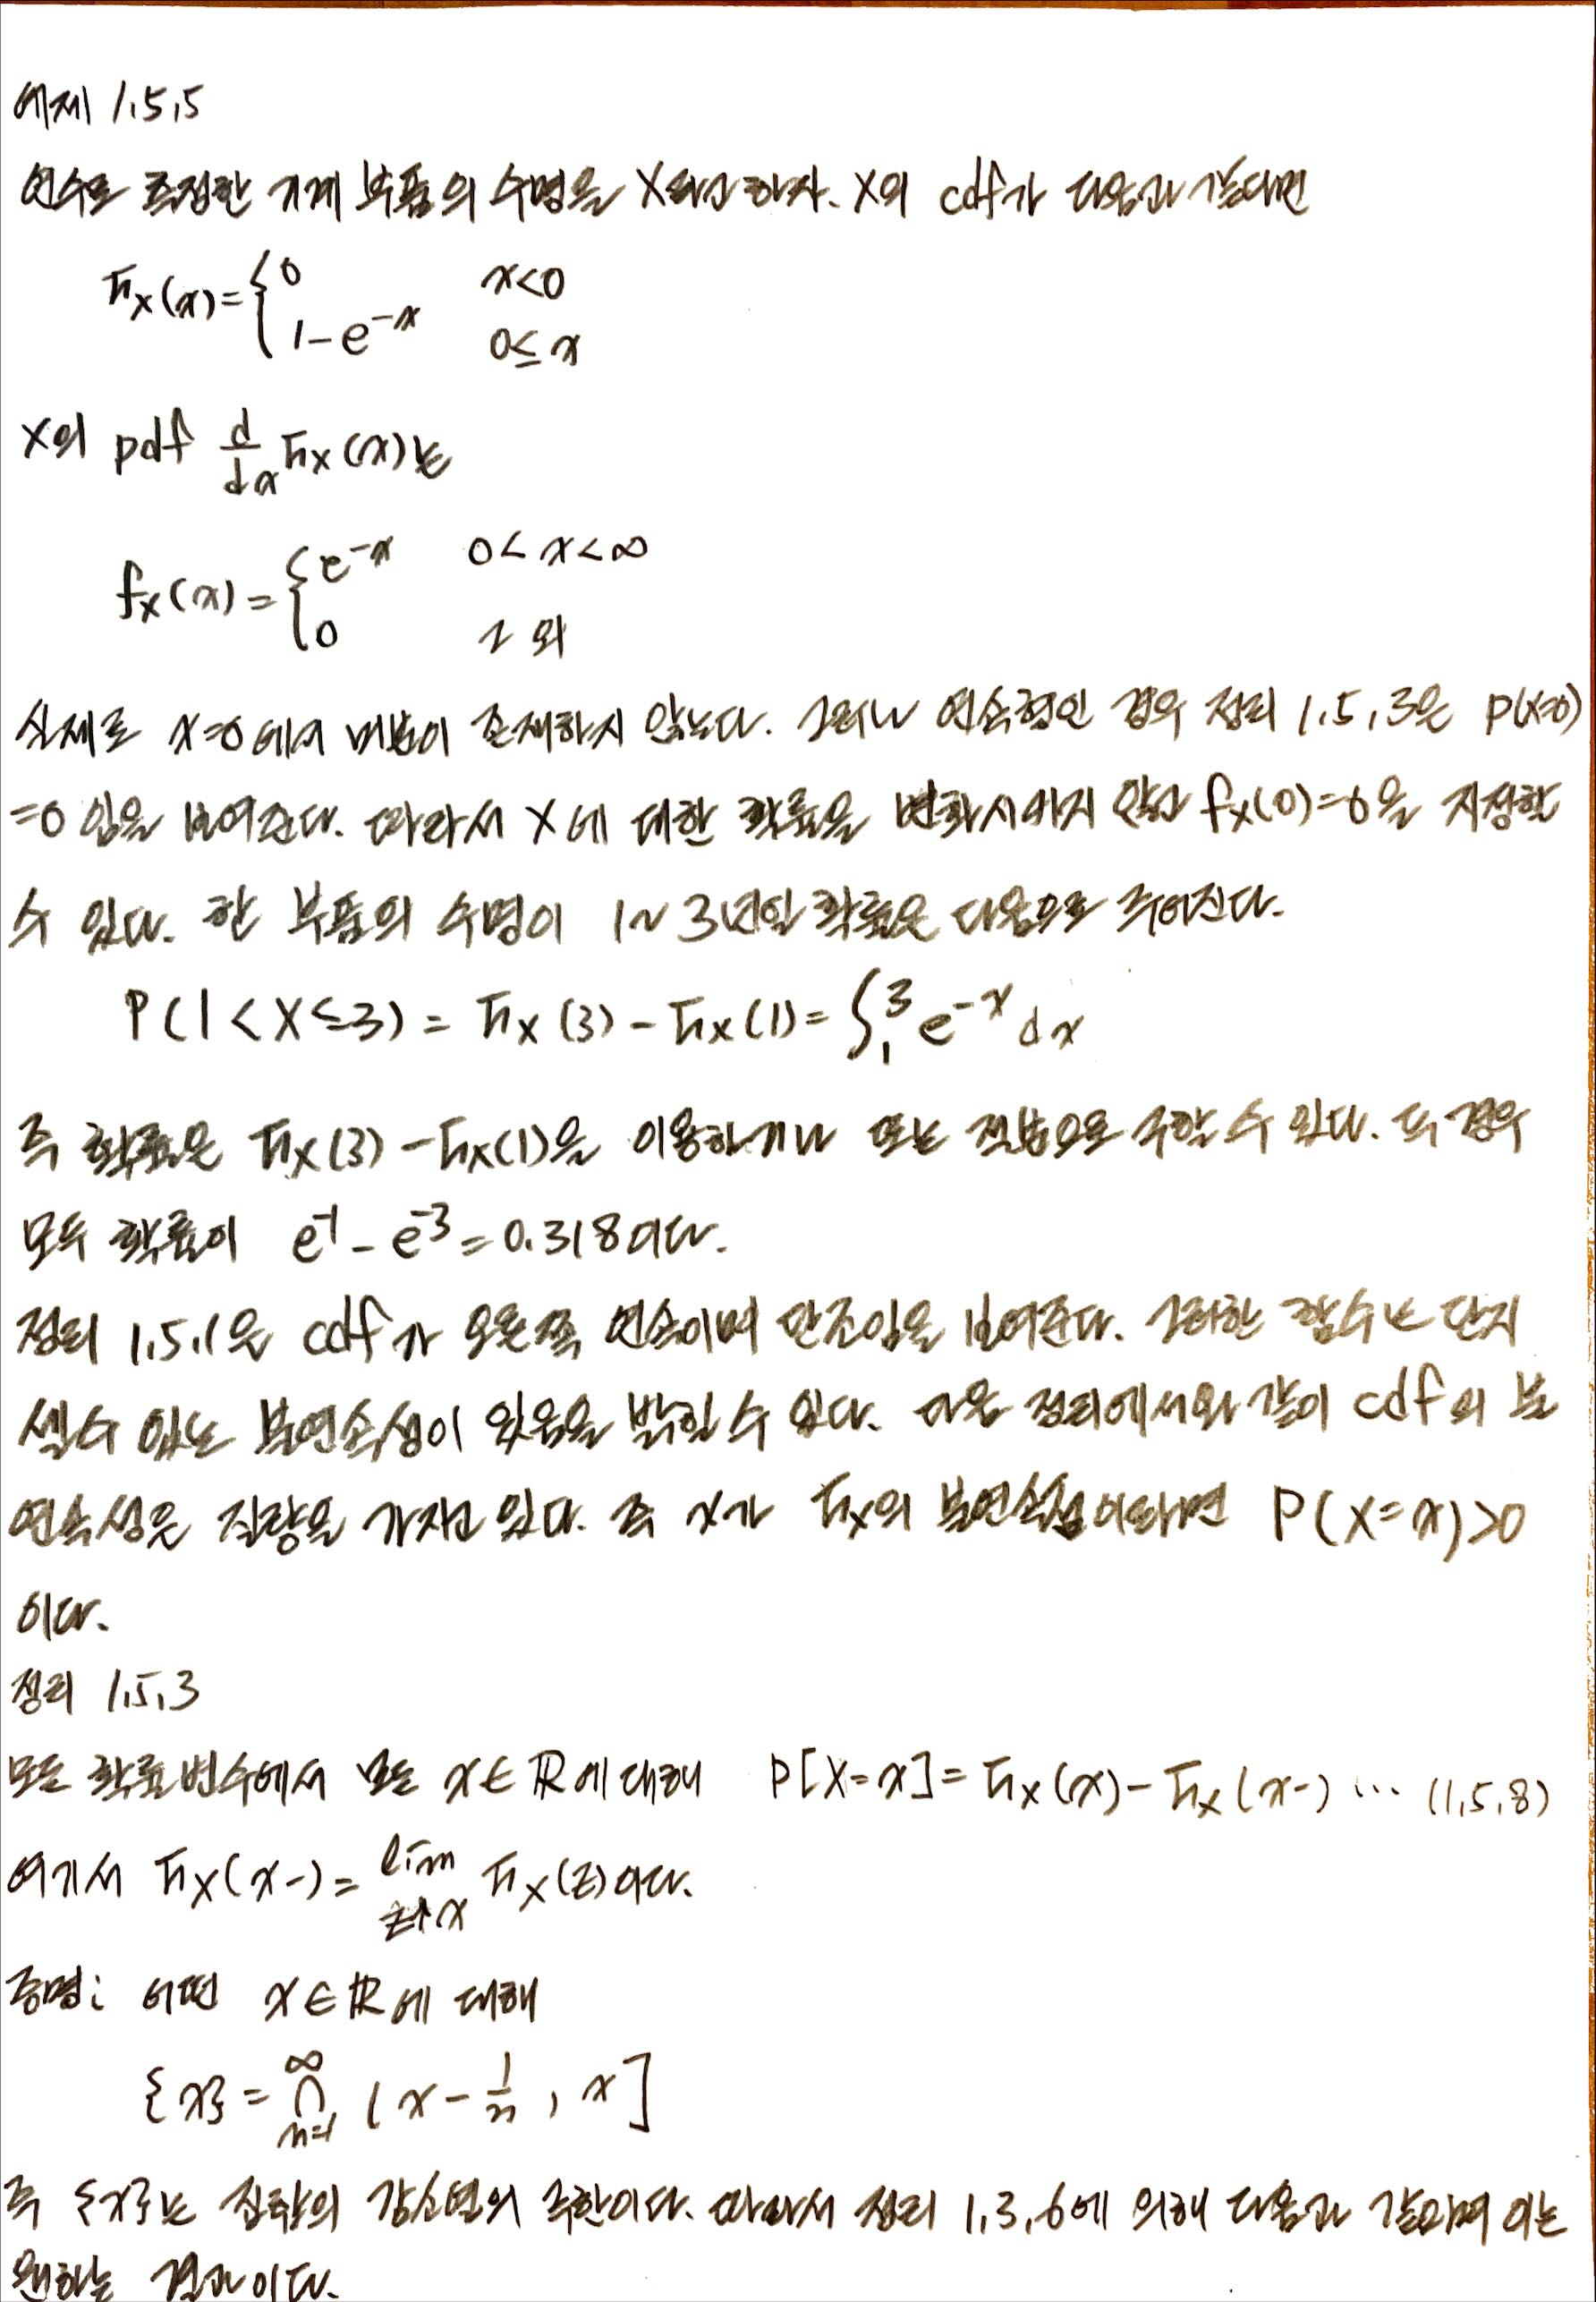 예제 1.5.5
연수로 측정한 기계 부품의 수명을 X라고 하자. X의 cdf가 다음과 같다면
F_X(x) = { 0    x<0
1-e^{-x}    0≤x
X의 pdf d/dx F_X(x)는
f_X(x) = { e^{-x}    0<x<∞
0    그 외
실제로 x=0에서 미분이 존재하지 않는다. 그러나 연속형인 경우 정리 1.5.3은 P(X=0)
=0 임을 보여준다. 따라서 X에 대한 확률을 변화시키지 않고 f_X(0)=0을 지정할
수 있다. 한 부품의 수명이 1~3년일 확률은 다음으로 주어진다.
P(1<X≤3) = F_X(3) - F_X(1) = ∫_1^3 e^{-x} dx
즉 확률은 F_X(3) - F_X(1)을 이용하거나 또는 적분으로 구할 수 있다. 두 경우
모두 확률이 e^{-1} - e^{-3} = 0.318이다.
정리 1.5.1은 cdf가 오른쪽 연속이며 단조임을 보여준다. 그러한 함수는 단지
셀수 있는 불연속성이 있음을 밝힐 수 있다. 다음 정리에서와 같이 cdf의 불
연속성은 질량을 가지고 있다. 즉 x가 F_X의 불연속점이라면 P(X=x)>0
이다.
정리 1.5.3
모든 확률변수에서 모든 x∈ℝ에 대해 P[X=x] = F_X(x) - F_X(x-) ... (1.5.8)
여기서 F_X(x-) = lim_{z↑x} F_X(z)이다.
증명: 어떤 x∈ℝ에 대해
{x} = ∩_{n=1}^∞ (x - 1/n, x]
즉 {x}는 집합의 감소열의 극한이다. 따라서 정리 1.3.6에 의해 다음과 같으며 이는
원하는 결과이다.